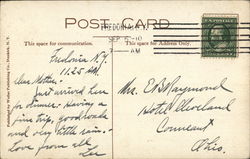 POST CARD
This space for communication.
This space for Address Only.
SEP 5-10
7-AM
Fredonia N.Y.
11.25 AM.
Dear Mother:-
Just arrived here
for dinner. Having a
fine trip, good roads
and very little rain.
Love from all
Lee
Mr. E B Raymond
Hotel Cleveland
Conneaut
Ohio.